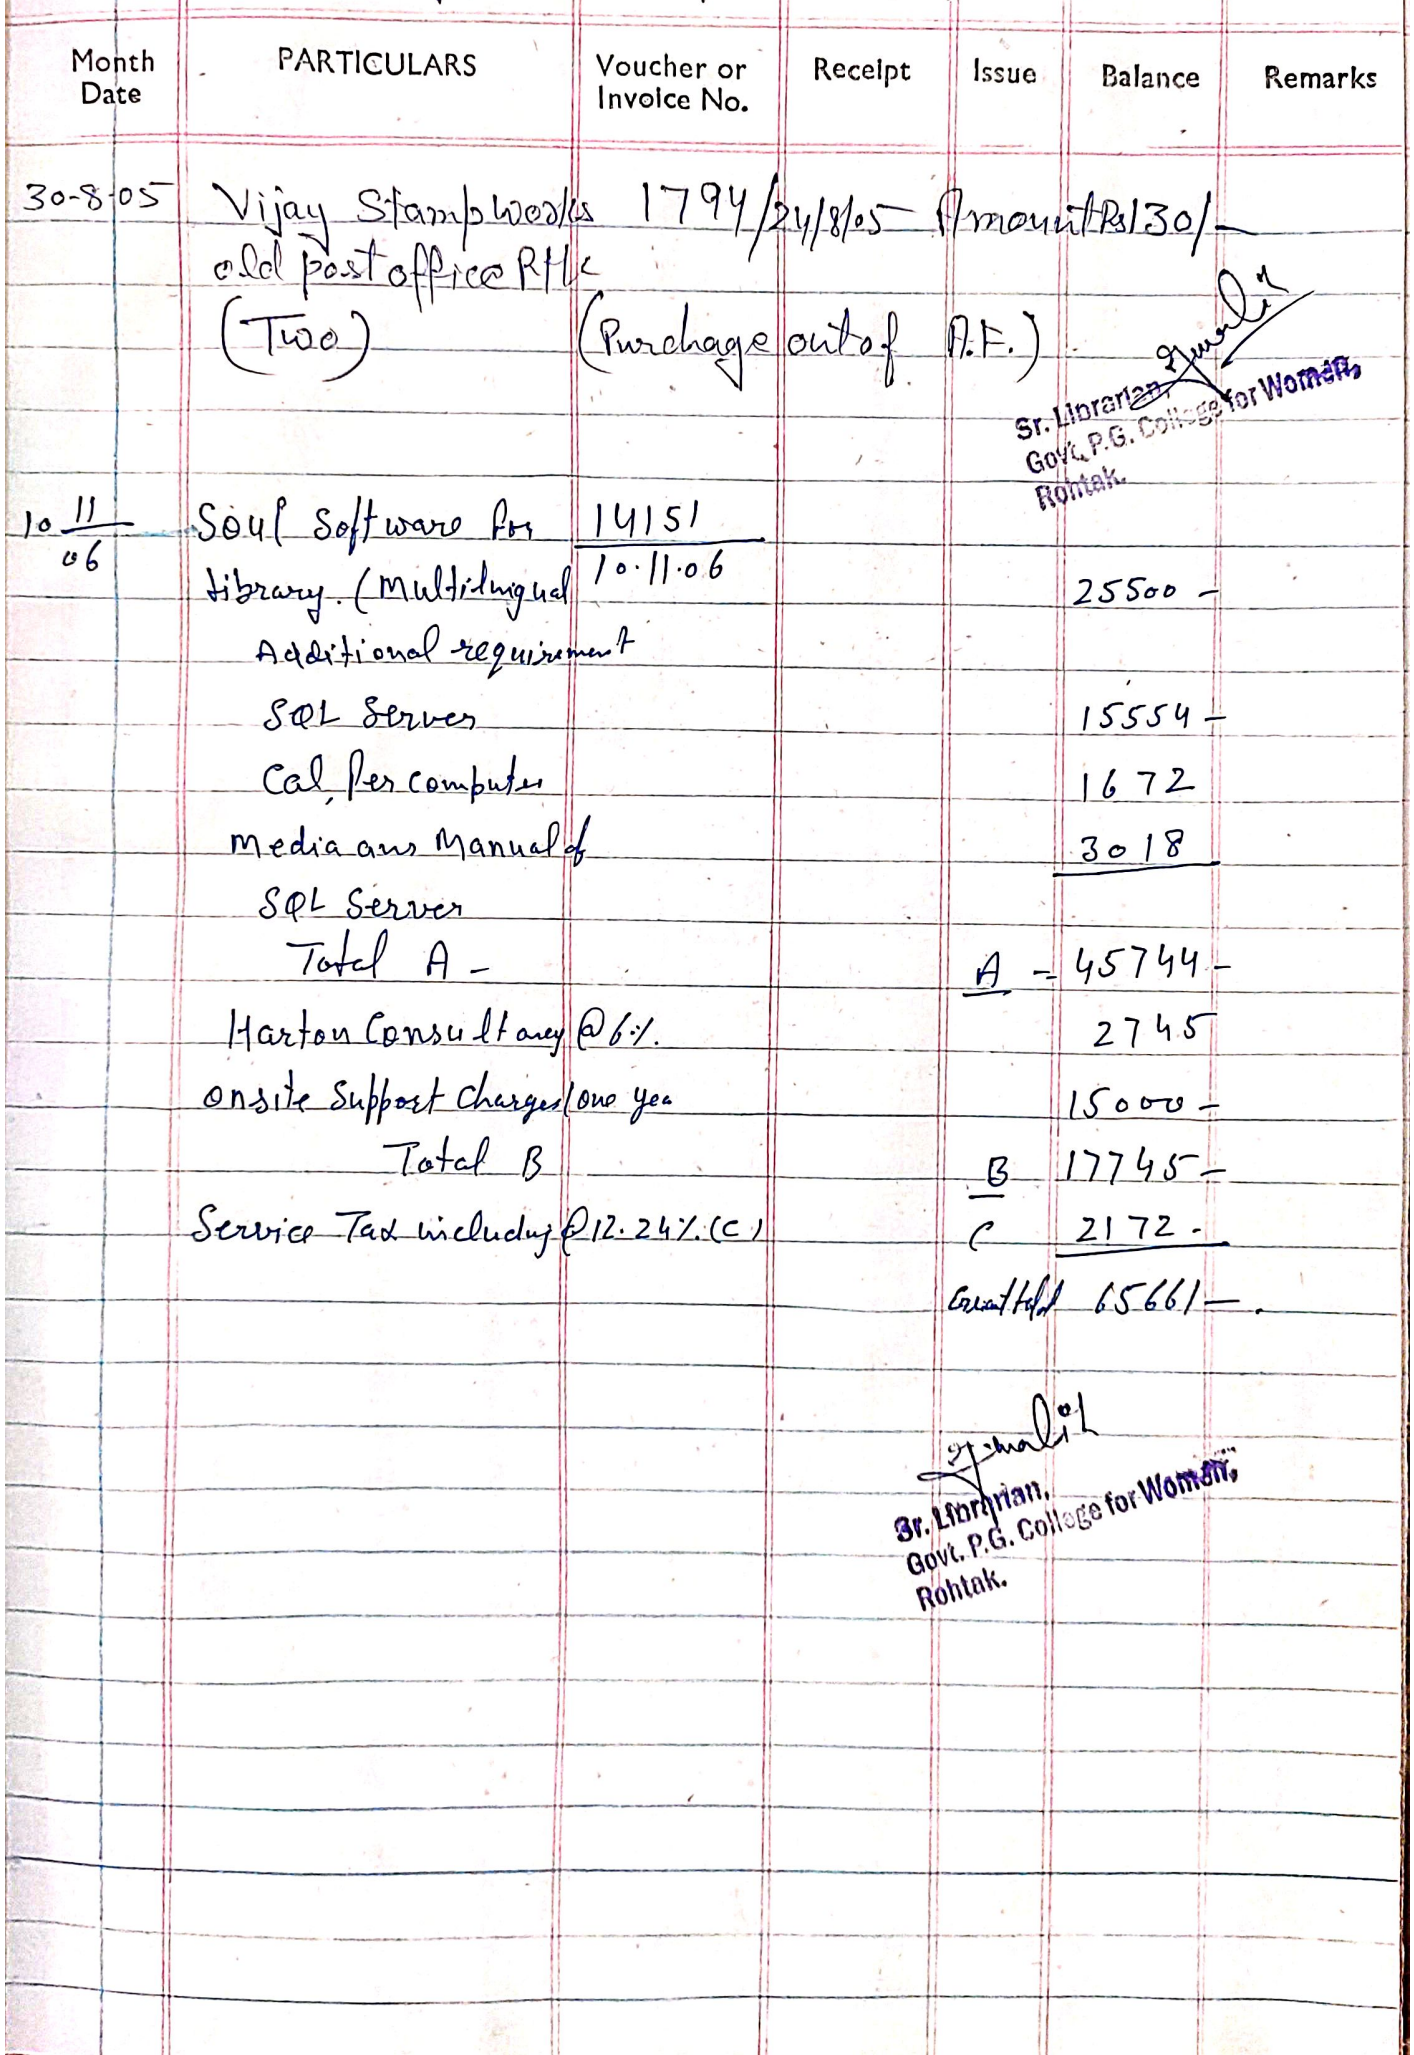 Month Date PARTICULARS Voucher or Invoice No. Receipt Issue Balance Remarks
30-8-05 Vijay Stampworks 1794/24/8/05 Amount Rs130/-
old post office RHK
(Two) (Purchage out of A.F.)
Sr. Librarian,
Govt. P.G. College for Women,
Rohtak.
10 11/06 Soul Software for 14151
10.11.06
Library. (Multilingual 25500 -
Additional requirement
SQL Server 15554 -
Cal, Per computer 1672
Media and Manual of 3018
SQL Server
Total A - A - 45744 -
Hartron Consultancy @ 6%. 2745
Onsite Support Charges/one yea 15000 -
Total B B 17745 -
Service Tax including @12.24%. (C) C 2172 -
Grant total 65661 -
Sr. Librarian,
Govt. P.G. College for Women,
Rohtak.